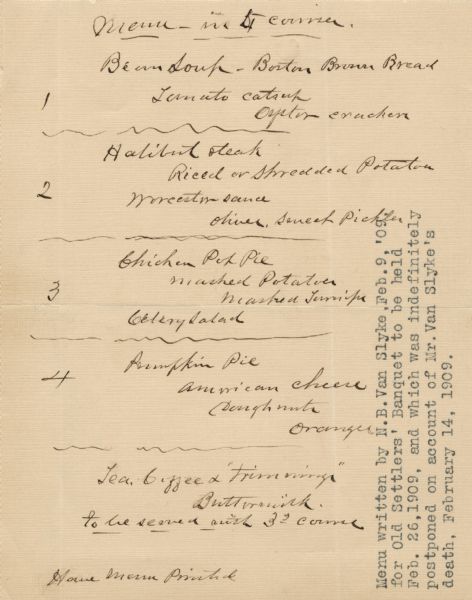 Menu - in 4 courses.
Bean Soup - Boston Brown Bread
1
Tomato catsup
Oyster crackers
Halibut steak
Riced or Shredded Potatoes
2
Worcester sauce
Olives, Sweet Pickles
Chicken Pot Pie
Mashed Potatoes
3
Mashed Turnips
Celery Salad
Pumpkin Pie
4
American cheese
Doughnuts
Oranges
Tea, Coffee & "Trimmings"
Buttermilk.
to be served with 3d course
Have Menu Printed
Menu written by N.B.Van Slyke,Feb.9,'09,
for Old Settlers' Banquet to be held
Feb. 26,1909, and which was indefinitely
postponed on account of Mr.Van Slyke's
death, February 14, 1909.